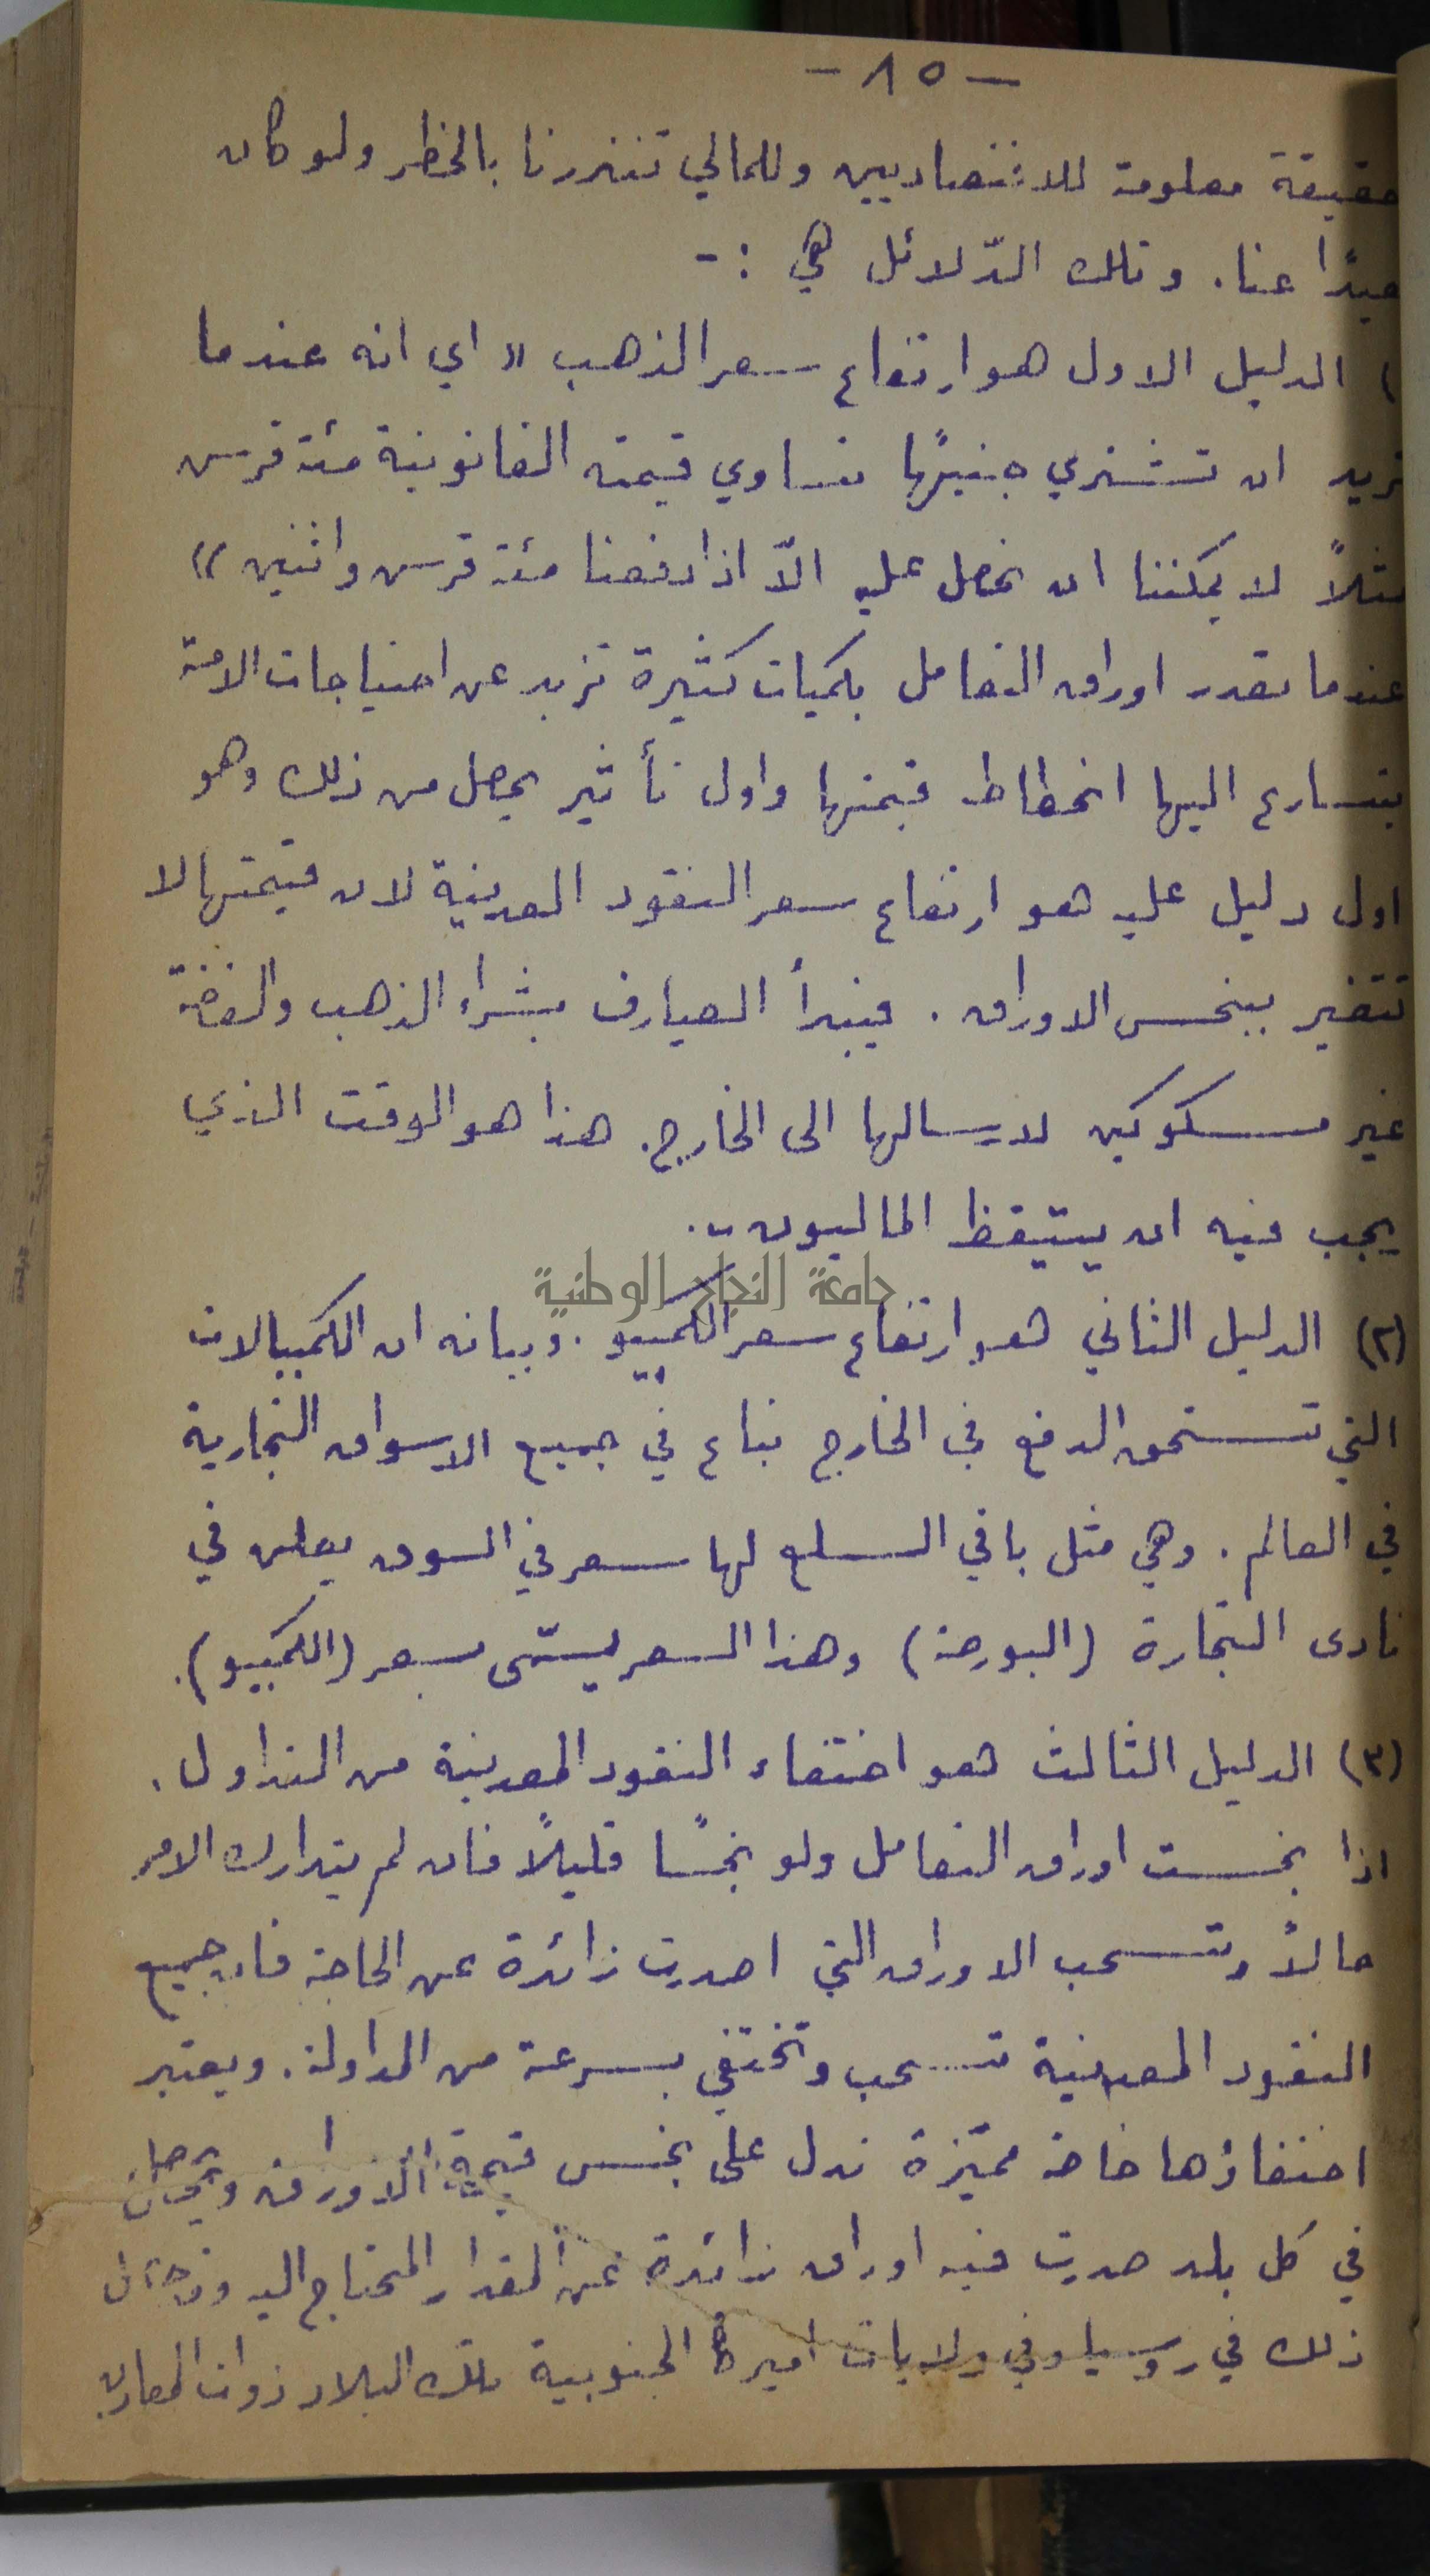 - ٨٥ -
حقيقة معلومة للاقتصاديين وللمالي تنذرنا بالخطر ولو كان
بعيدًا عنا. وتلك الدّلائل هي :-
) الدليل الاول هو ارتفاع سعر الذهب " اي انه عندما
نريد ان نشتري جنيهًا تساوي قيمته القانونية مئة قرش
مثلاً لا يمكننا ان نحصل عليه الاّ اذا دفعنا مئة قرش واثنين "
عندما تصدر اوراق التعامل بكميات كثيرة تزيد عن احتياجات الامة
يتسارع اليها انحطاط قيمتها واول تأثير يحصل من ذلك وهو
اول دليل عليه هو ارتفاع سعر النقود المعدنية لان قيمتها لا
تتغير ببخس الاوراق . فيبدأ الصيارف بشراء الذهب والفضة
غير مسكوكين لارسالها الى الخارج. هذا هو الوقت الذي
يجب فيه ان يتيقظ الماليون ..
جامعة النجاح الوطنية
(٢) الدليل الثاني هو ارتفاع سعر الكمبيو . وبيانه ان الكمبيالات
التي تستحق الدفع في الخارج تباع في جميع الاسواق التجارية
في العالم . وهي مثل باقي السلع لها سعر في السوق يعلن في
نادى التجارة (البورصة) وهذا السعر يسمّى بسعر (الكمبيو).
(٣) الدليل الثالث هو اختفاء النقود المعدنية من التداول .
اذا بخست اوراق التعامل ولو بخسًا قليلاً فان لم يتدارك الامر
حالاً وتسحب الاوراق التي اصدرت زائدة عن الحاجة فان جميع
النقود المعدنية تسحب وتختفي بسرعة من المداولة. ويعتبر
اختفاؤها خاصة مميّزة تدل على بخس قيمة الاوراق
في كل بلد صدرت فيه اوراق زائدة عن المقدار المحتاج اليه وقد حصل
ذلك في روسيا وفي ولايات اميركا الجنوبية تلك البلاد ذوات المعادن